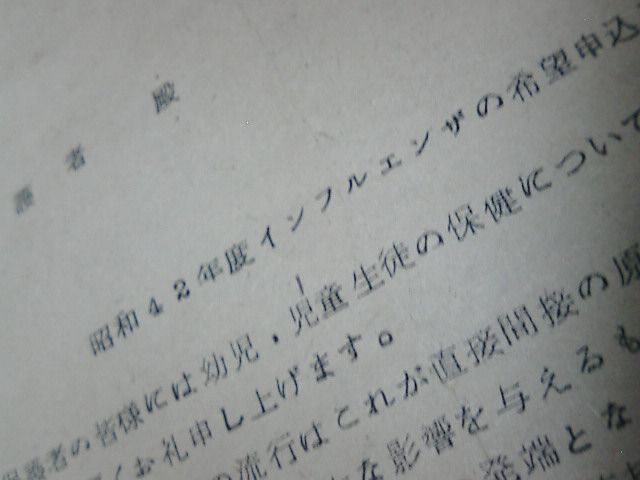 護者 殿
昭和42年度インフルエンザの希望申込
保護者の皆様には幼児・児童生徒の保健について
お礼申し上げます。
の流行はこれが直接間接の原
な影響を与えるも
発端とな